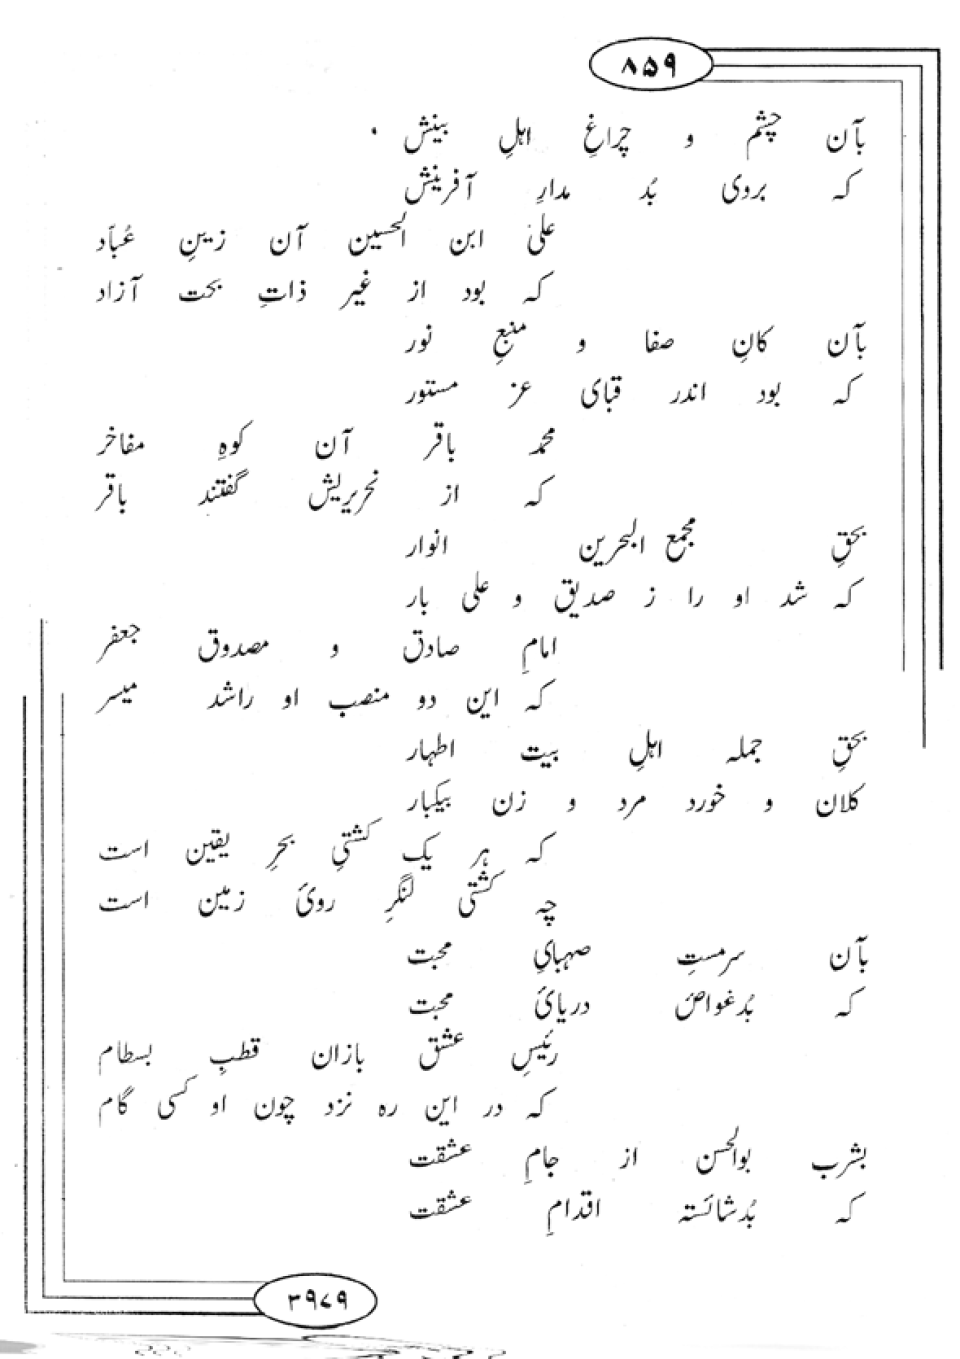 ۸۵۹
بآن چشم و چراغِ اہلِ بینش
کہ بروی بُد مدارِ آفرینش
علیٔ ابن الحسین آن زینِ عُبّاد
کہ بود از غیر ذاتِ بحت آزاد
بآن کانِ صفا و منبعِ نور
کہ بود اندر قبای عز مستور
محمد باقر آن کوہِ مفاخر
کہ از نحریریش گفتند باقر
بحقِ مجمع البحرین انوار
کہ شد او را ز صدیق و علی بار
امامِ صادق و مصدوق جعفر
کہ این دو منصب او راشد میسر
بحقِ جملہ اہلِ بیت اطہار
کلان و خورد مرد و زن بیکبار
کہ ہر یک کشتیِ بحرِ یقین است
چہ کشتی لنگرِ رویٔ زمین است
بآن سرمستِ صہبایِ محبت
کہ بُدغواصِ دریایٔ محبت
رئیسِ عشق بازان قطبِ بسطام
کہ در این رہ نزد چون او کسی گام
بشرب بوالحسن از جامِ عشقت
کہ بُدشائستہ اقدامِ عشقت
۳۹۷۹